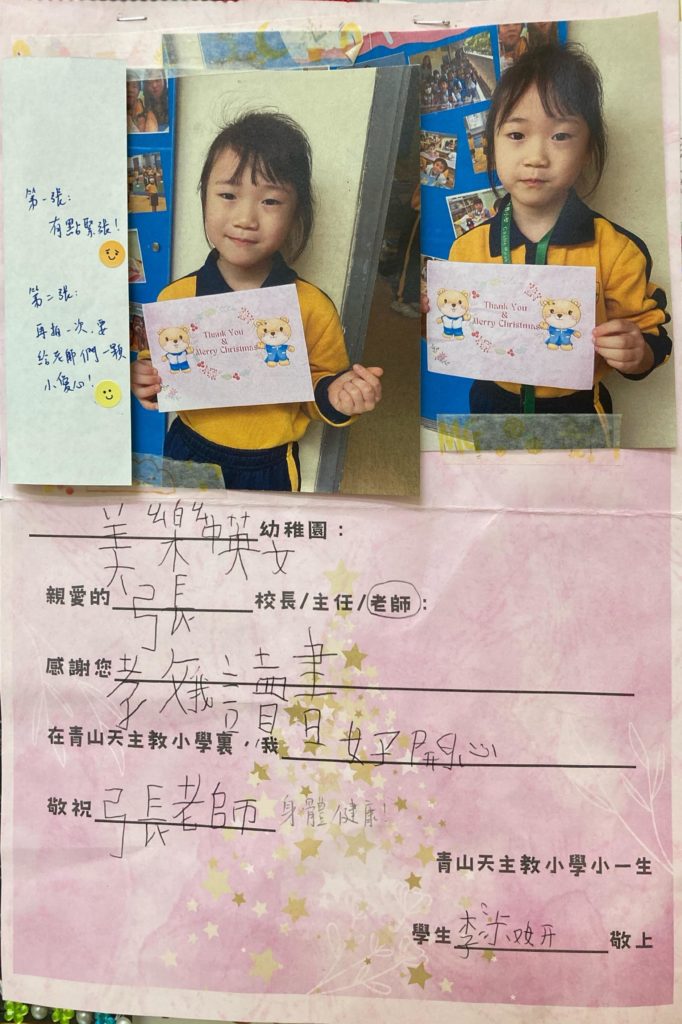 第一張:
有點緊張!
第二張:
再拍一次,要
給老師們一顆
小愛心!
Thank You
&
Merry Christmas
Thank You
&
Merry Christmas
美樂幼英文幼稚園:
親愛的張校長/主任/老師:
感謝您教我讀書
在青山天主教小學裏,我好開心
敬祝張老師 身體健康!
青山天主教小學小一生
學生李 敬上